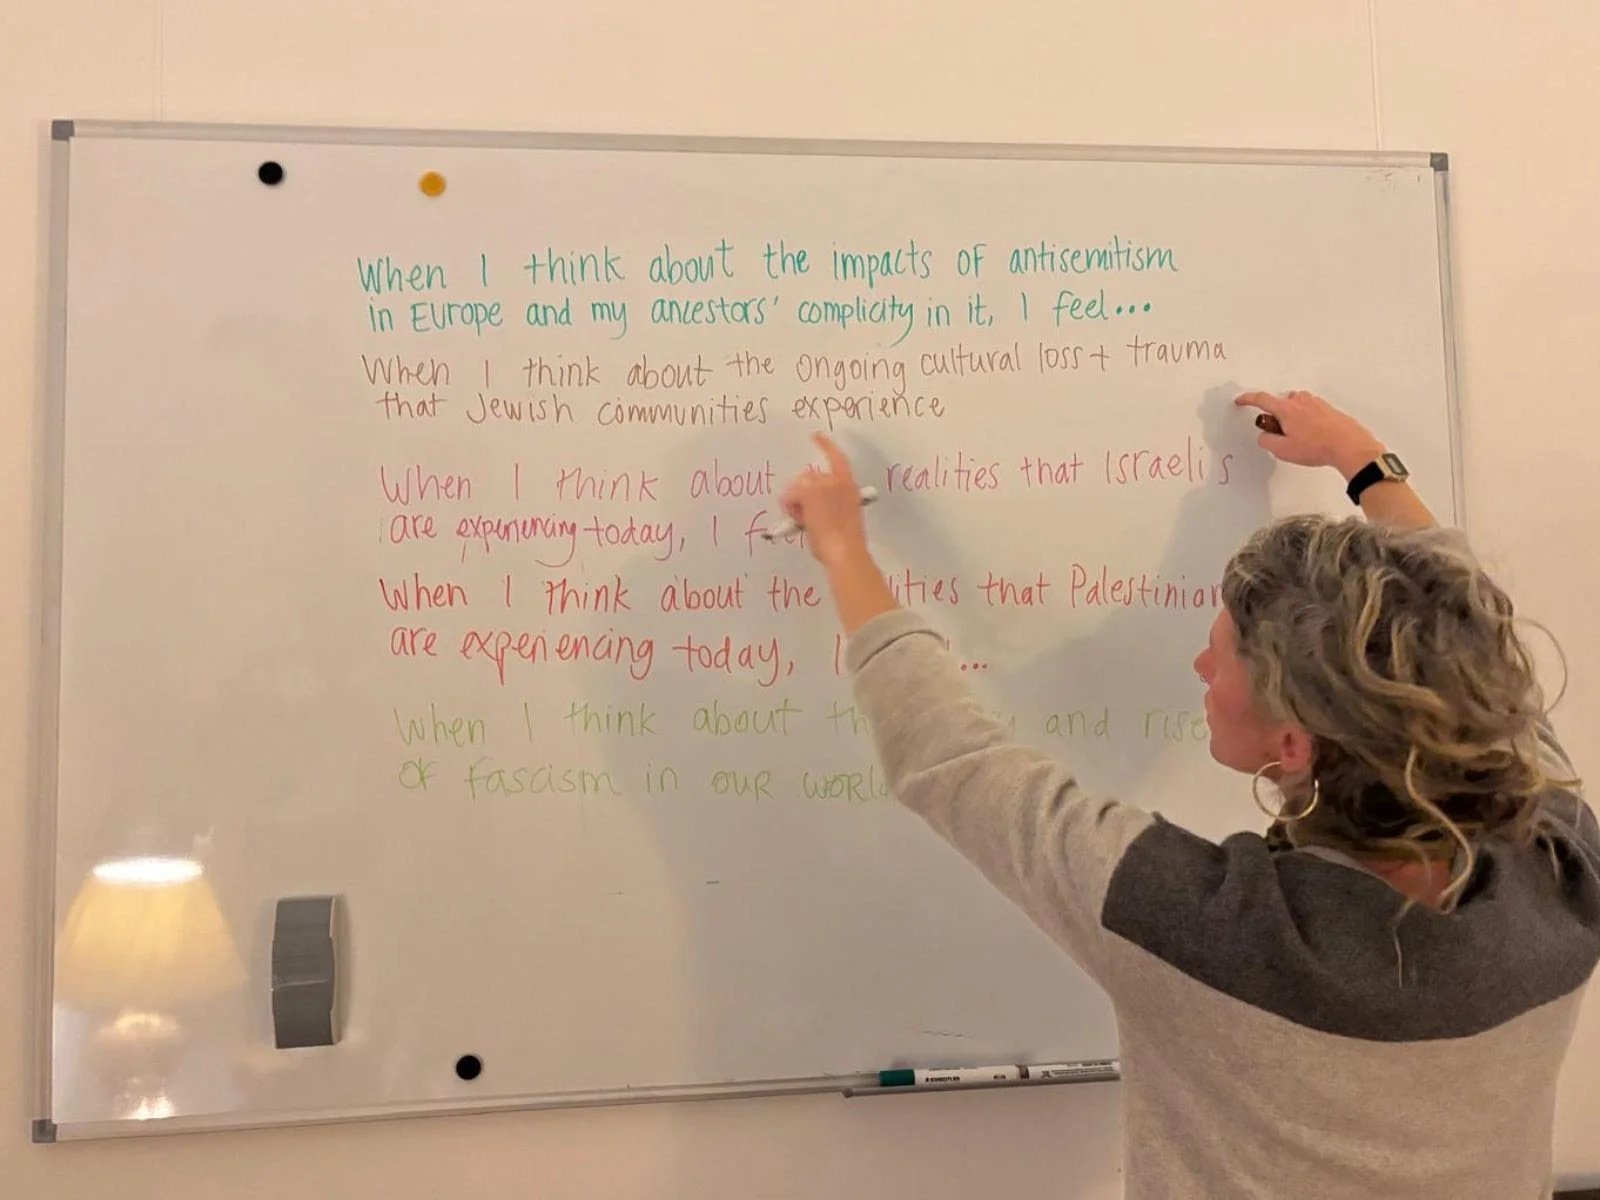 When I think about the impacts of antisemitism
in Europe and my ancestors' complicity in it, I feel...
When I think about the ongoing cultural loss + trauma
that Jewish communities experience
When I think about realities that Israelis
are experiencing today, I
When I think about the that Palestinian
are experiencing today, I ...
When I think about and rise
of fascism in our world
STAEDTLER